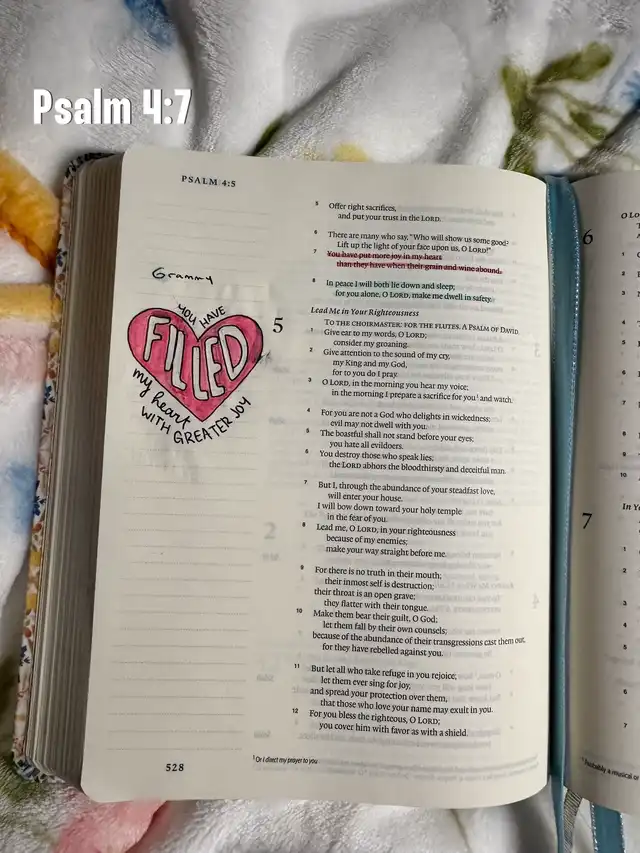 Psalm 4:7
PSALM 4:5
Grammy
YOU HAVE
FILLED
my heart
WITH GREATER JOY
5 Offer right sacrifices,
and put your trust in the LORD.
6 There are many who say, "Who will show us some good?
Lift up the light of your face upon us, O LORD!"
7 You have put more joy in my heart
than they have when their grain and wine abound.
8 In peace I will both lie down and sleep;
for you alone, O LORD, make me dwell in safety.
Lead Me in Your Righteousness
TO THE CHOIRMASTER: FOR THE FLUTES. A PSALM OF DAVID.
5
1 Give ear to my words, O LORD;
consider my groaning.
2 Give attention to the sound of my cry,
my King and my God,
for to you do I pray.
3 O LORD, in the morning you hear my voice;
in the morning I prepare a sacrifice for you¹ and watch.
4 For you are not a God who delights in wickedness;
evil may not dwell with you.
5 The boastful shall not stand before your eyes;
you hate all evildoers.
6 You destroy those who speak lies;
the LORD abhors the bloodthirsty and deceitful man.
7 But I, through the abundance of your steadfast love,
will enter your house.
I will bow down toward your holy temple
in the fear of you.
8 Lead me, O LORD, in your righteousness
because of my enemies;
make your way straight before me.
9 For there is no truth in their mouth;
their inmost self is destruction;
their throat is an open grave;
they flatter with their tongue.
10 Make them bear their guilt, O God;
let them fall by their own counsels;
because of the abundance of their transgressions cast them out,
for they have rebelled against you.
11 But let all who take refuge in you rejoice;
let them ever sing for joy,
and spread your protection over them,
that those who love your name may exult in you.
12 For you bless the righteous, O LORD;
you cover him with favor as with a shield.
¹ Or I direct my prayer to you
528
6
7